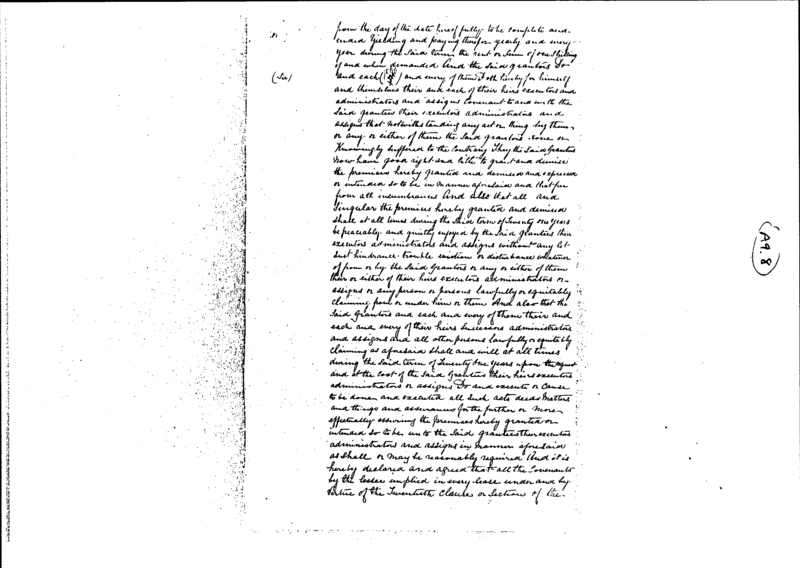 from the day of the date hereof fully to be complete and
ended Yielding and paying therefor yearly and every
year during the said term the rent or Sum of one Shilling
if and when demanded And the Said grantors Do
(Sic)
and each ( ) and every of them Doth hereby for himself
and themselves their and each of their heirs executors and
administrators and assigns Covenant to and with the
Said grantees their executors administrators and
assigns that notwithstanding any act or thing by them
or any or either of them the Said grantors done or
Knowingly Suffered to the Contrary They the Said Grantors
Now have good right and title to grant and demise
the premises hereby granted and demised and expressed
or intended so to be in Manner aforesaid and that free
from all incumbrances And also that all and
Singular the premises hereby granted and demised
Shall at all times during the Said term of Twenty one Years
be peaceably and quietly enjoyed by the Said grantees their
executors administrators and assigns without any let
Suit hindrance trouble eviction or disturbance whatever
of from or by the Said Grantors or any or either of them
their or either of their heirs executors administrators or
assigns or any person or persons lawfully or equitably
claiming from or under him or them And also that the
Said Grantors and each and every of them their and
each and every of their heirs Successors administrators
and assigns and all other persons lawfully or equitably
Claiming as aforesaid Shall and will at all times
during the Said term of Twenty one Years upon the request
and at the cost of the Said Grantees their heirs executors
administrators or assigns Do and execute or Cause
to be done and executed all Such acts deeds Matters
and things and assurances for the further or More
effectually assuring the premises hereby granted or
intended so to be unto the Said grantees their executors
administrators and assigns in manner aforesaid
as Shall or May be reasonably required And it is
hereby declared and agreed that all the Covenants
by the lessee implied in every lease under and by
Virtue of the Twentieth Clause or Section of the
(A9.8)